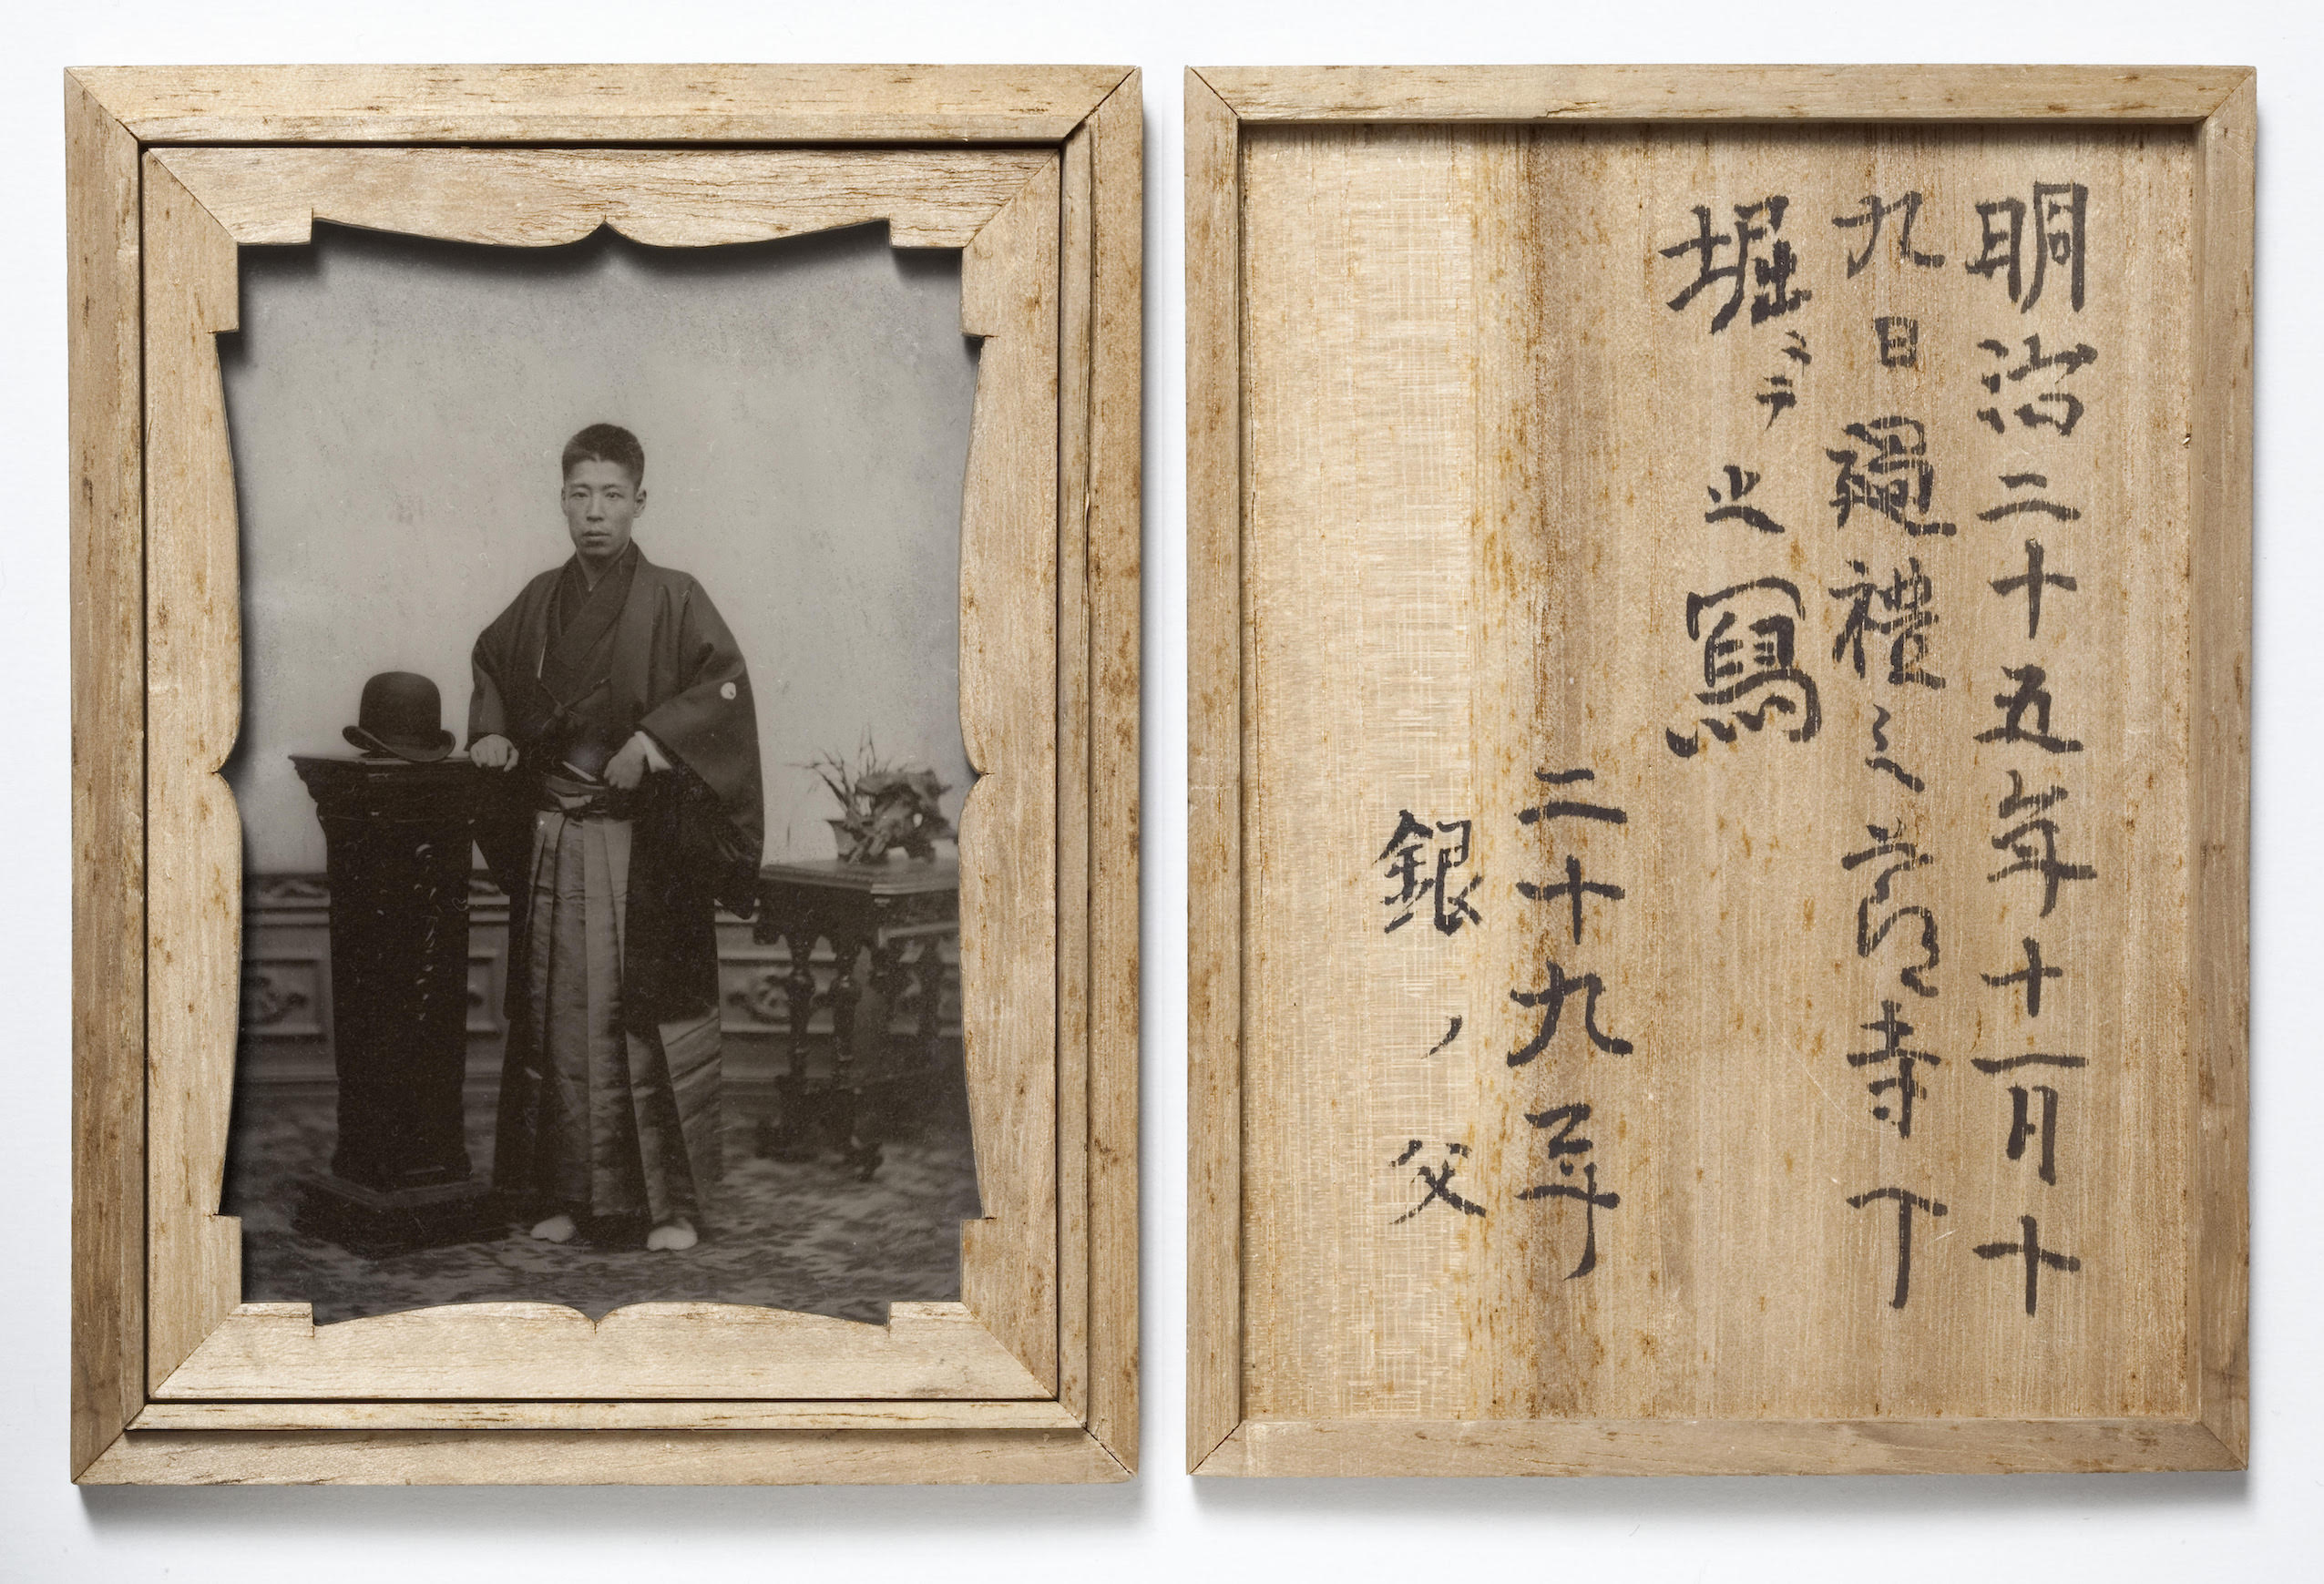 明治二十五年十一月十
九日廻禮之節寺丁
堀ニテ之寫
二十九
銀ノ父